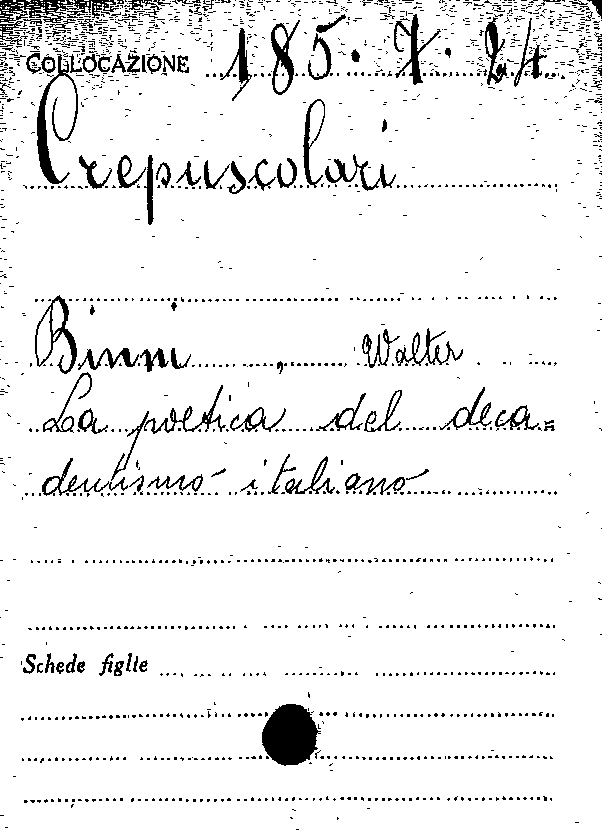 COLLOCAZIONE 185.7.24
Crepuscolari
Binni, Walter
La poetica del deca=
dentismo italiano
Schede figlie